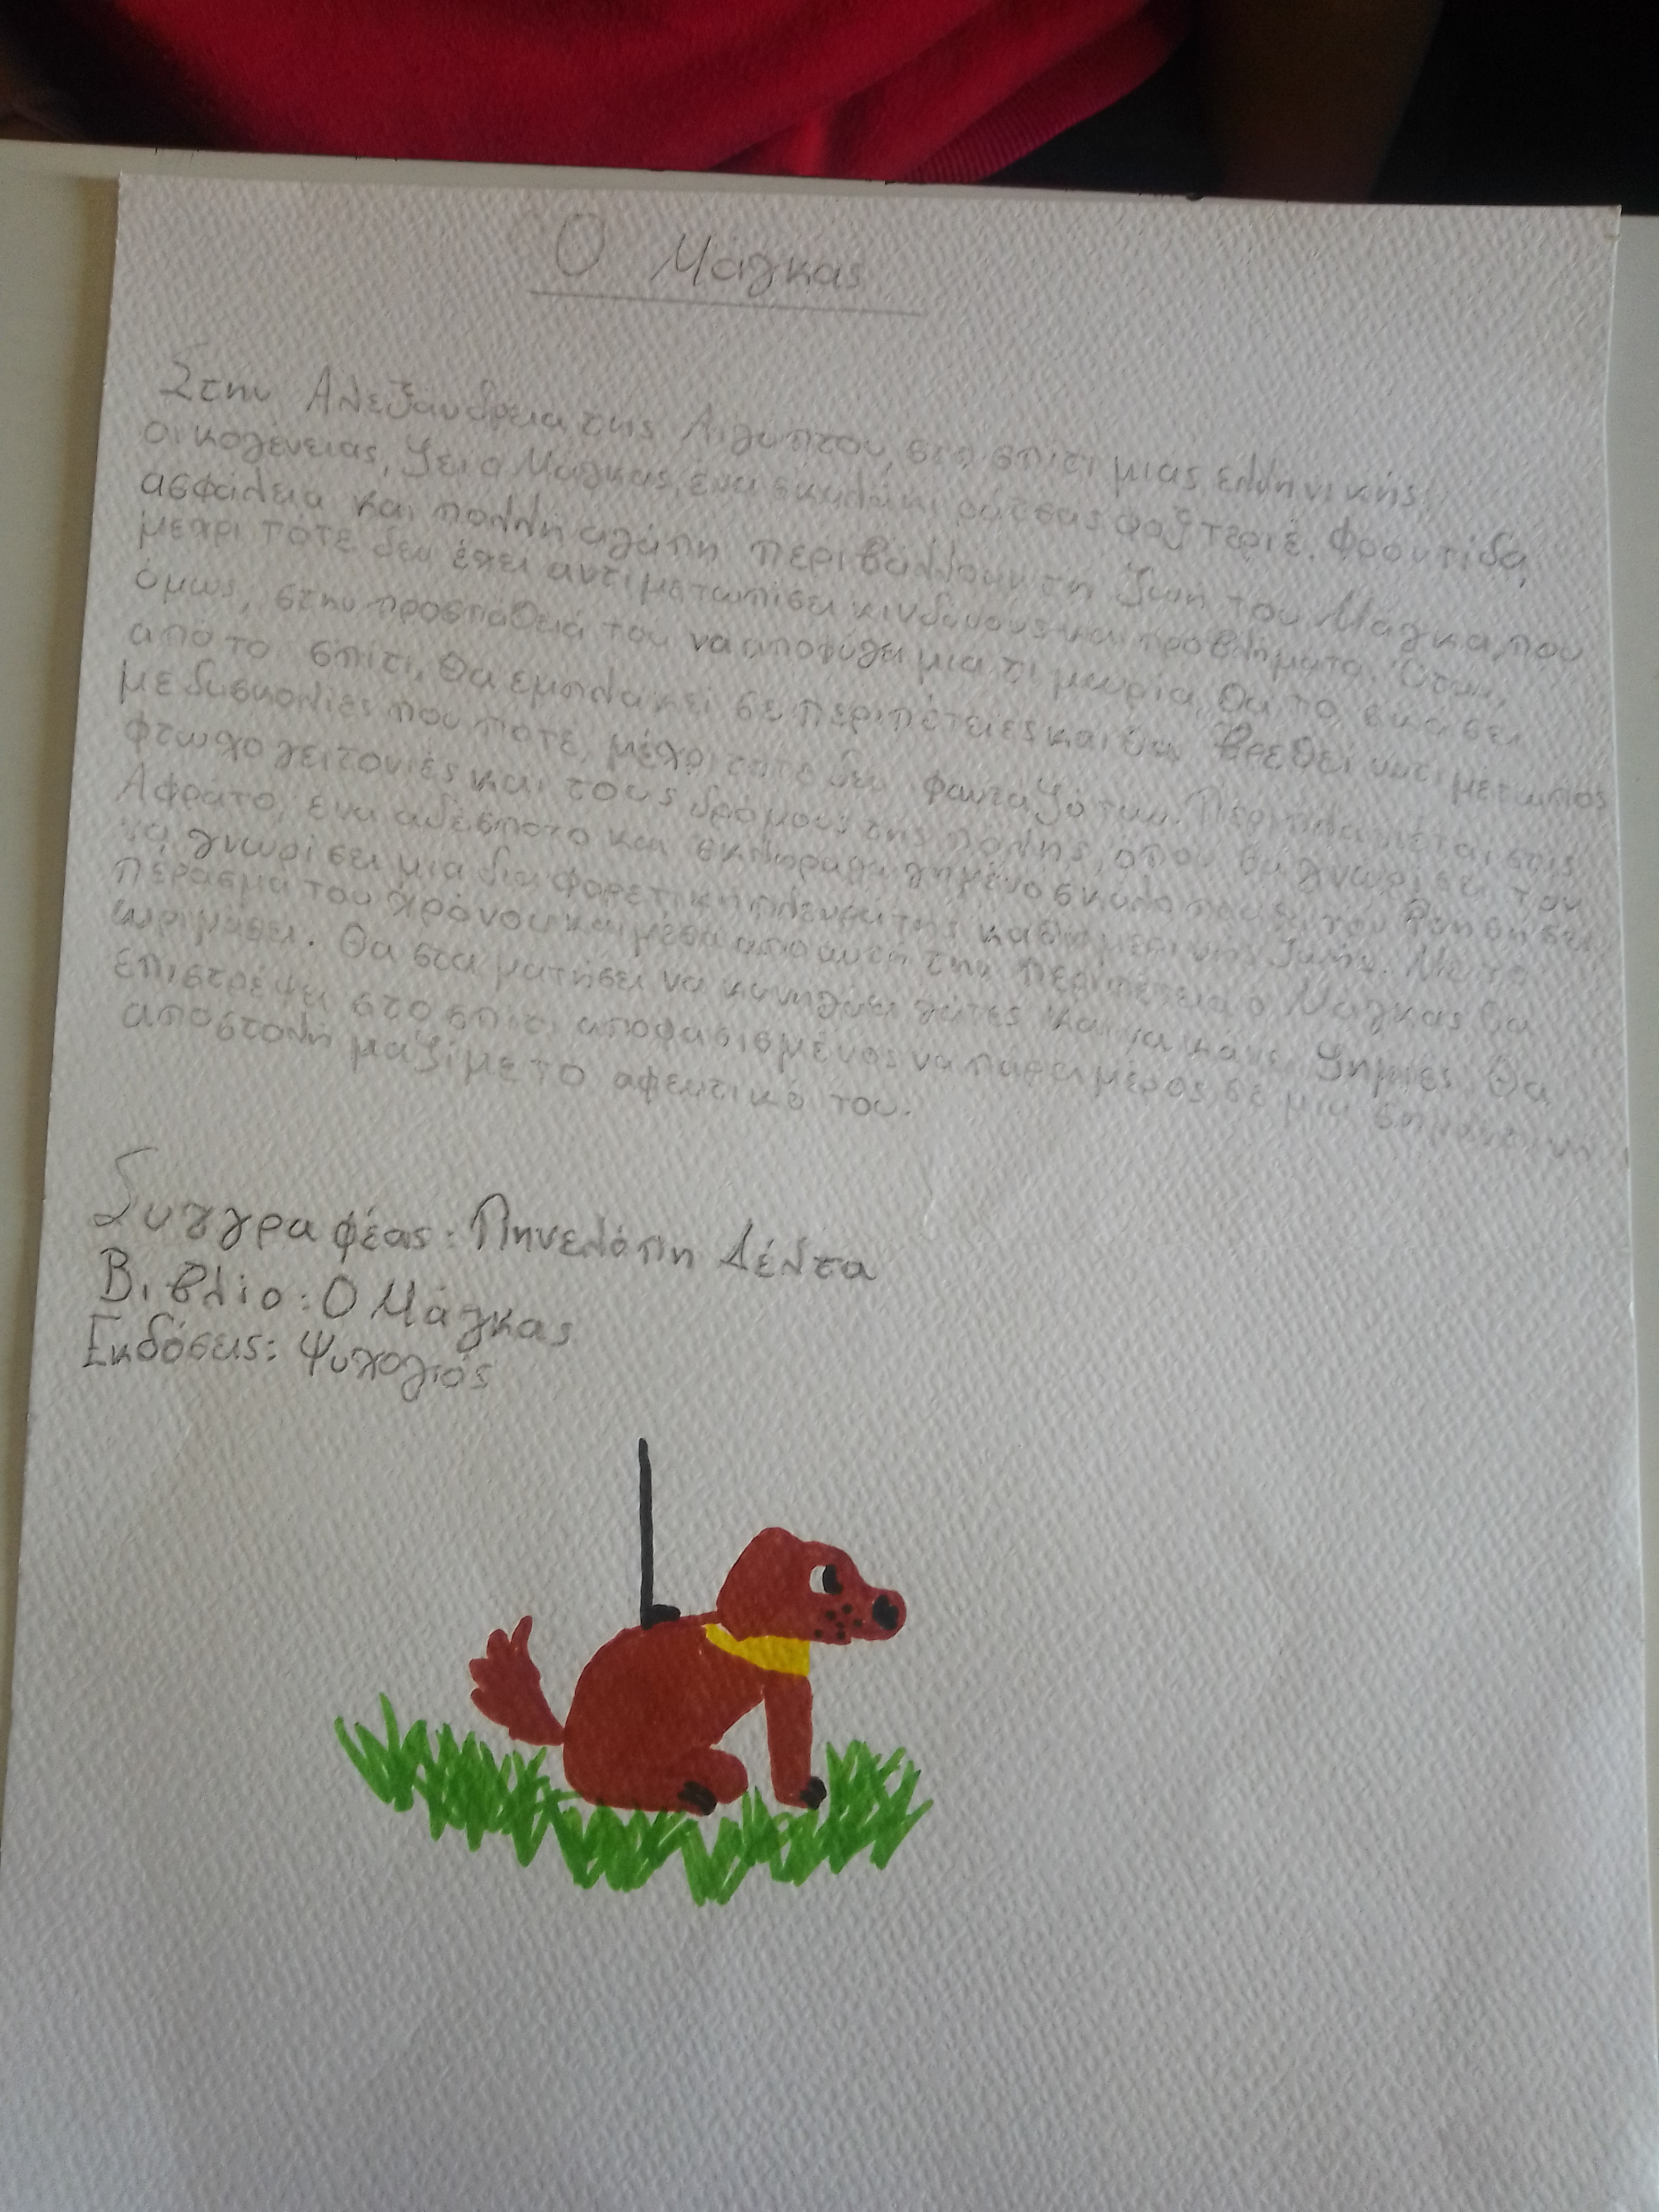 Ο Μάγκας
Στην Αλεξάνδρεια της Αιγύπτου, στο σπίτι μιας ελληνικής
οικογένειας, ζει ο Μάγκας, ένα σκυλάκι ράτσας φοξ τεριέ. Φροντίδα,
ασφάλεια και πολλή αγάπη περιβάλλουν τη ζωή του Μάγκα, που
μέχρι τότε δεν έχει αντιμετωπίσει κινδύνους και προβλήματα. Όταν,
όμως, στην προσπάθειά του να αποφύγει μια τιμωρία, θα το σκάσει
από το σπίτι, θα εμπλακεί σε περιπέτειες και θα βρεθεί αντιμέτωπος
με δυσκολίες που ποτέ, μέχρι τότε δεν φανταζόταν. Περιπλανιέται στις
φτωχογειτονιές και τους δρόμους της πόλης, όπου θα γνωρίσει τον
Αφράτο, ένα αδέσποτο και σκληραγωγημένο σκύλο που θα τον βοηθήσει
να γνωρίσει μια διαφορετική πλευρά της καθημερινής ζωής. Με το
πέρασμα του χρόνου και μέσα από αυτή την περιπέτεια ο Μάγκας θα
ωριμάσει. Θα σταματήσει να κυνηγάει γάτες και να κάνει ζημιές. Θα
επιστρέψει στο σπίτι αποφασισμένος να πάρει μέρος σε μια σημαντική
αποστολή μαζί με το αφεντικό του.
Συγγραφέας: Πηνελόπη Δέλτα
Βιβλίο: Ο Μάγκας
Εκδόσεις: Ψυχογιός